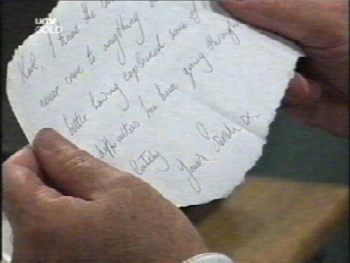 UKTV
GOLD
Kat. I know the
never come to anything
better having explained some of
difficulties he has been going through
lately
Yours Sarah x.